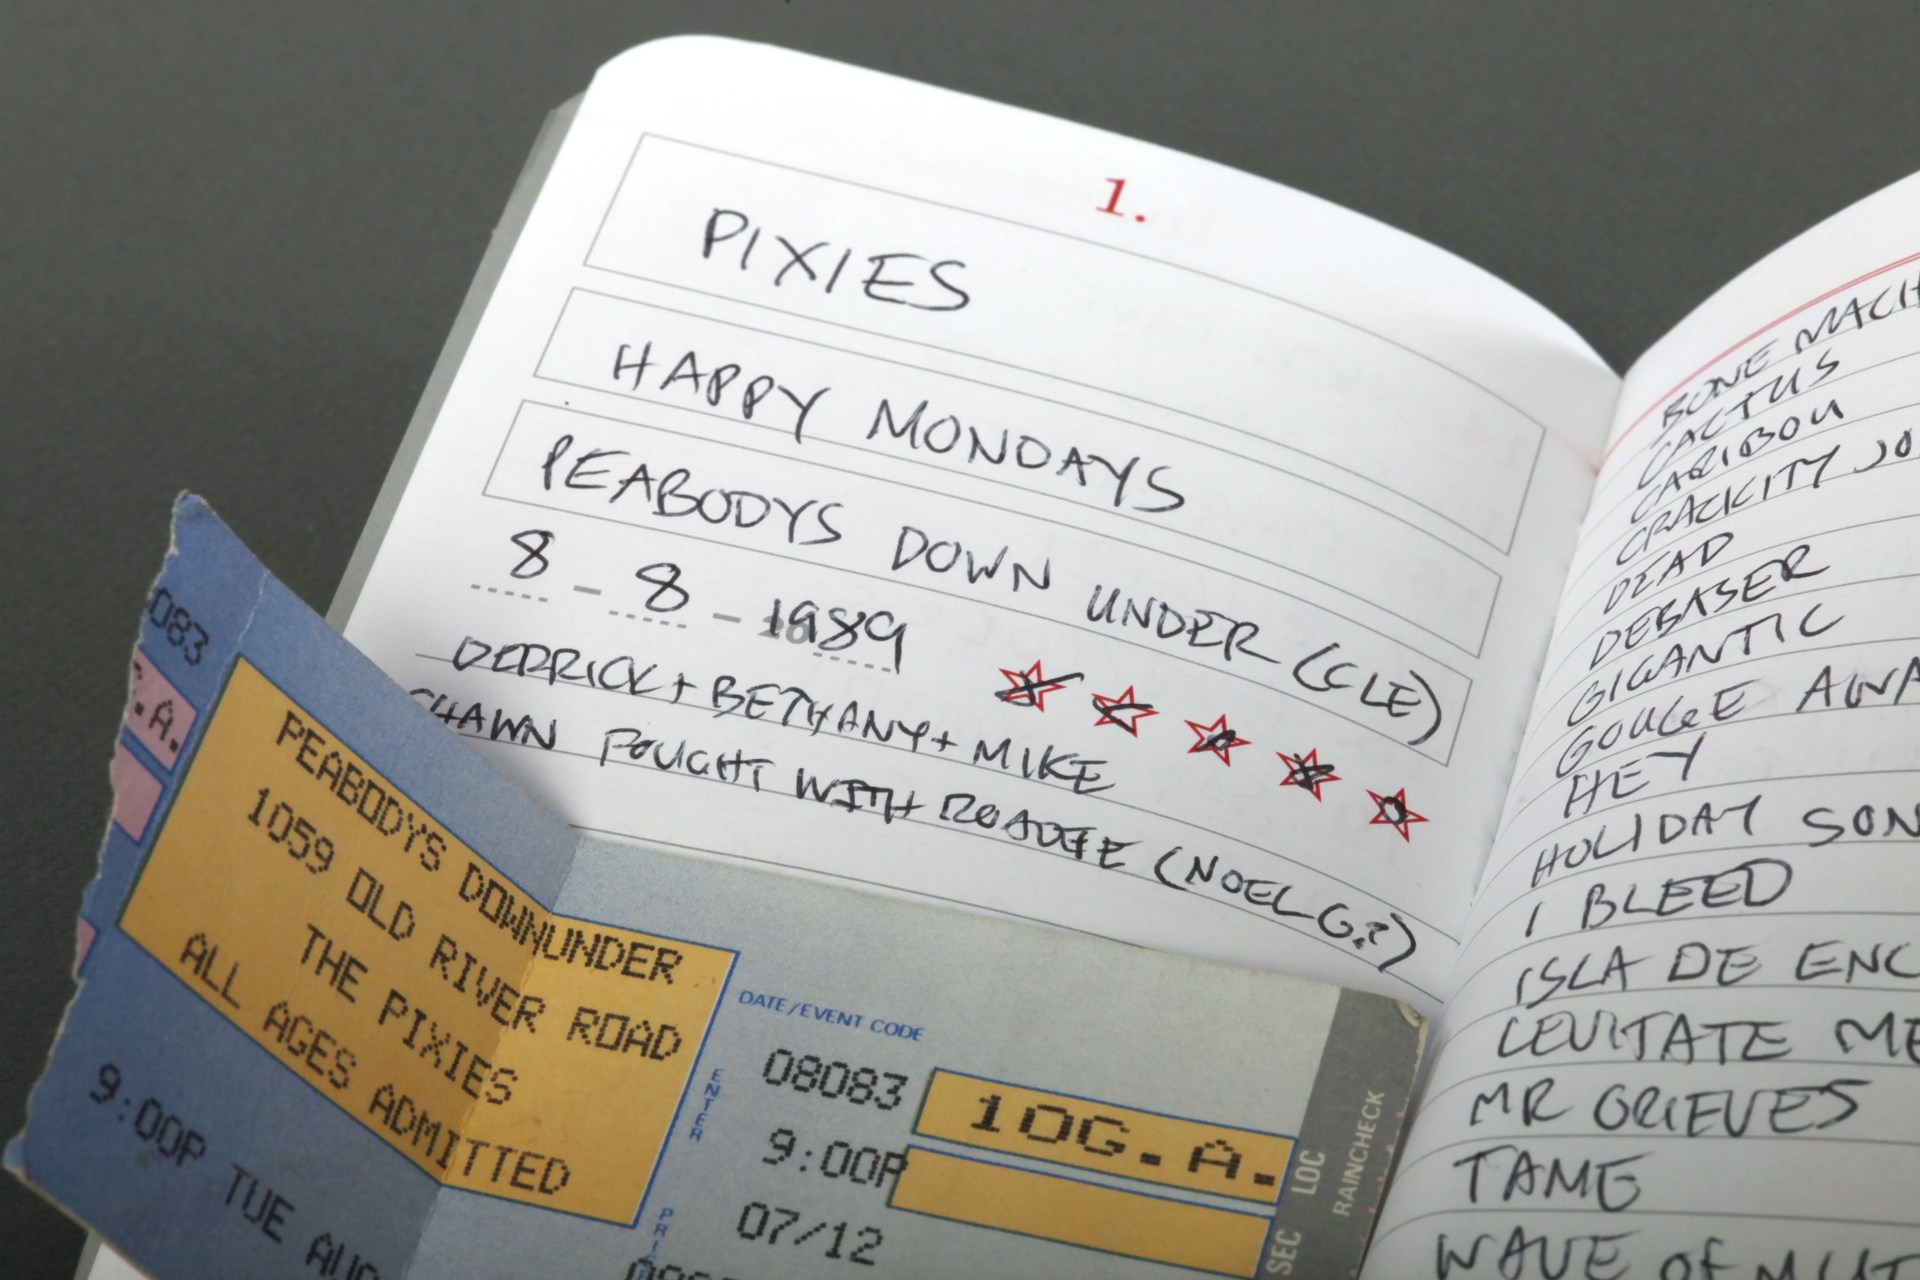 1.
PIXIES
HAPPY MONDAYS
PEABODYS DOWN UNDER (CLE)
8 - 8 - 1989
DERRICK + BETHANY + MIKE
SHAWN FOUGHT WITH ROADIE (NOEL G?)
BONE MACH
CACTUS
CARIBOU
CRACKITY JO
DEAD
DEBASER
GIGANTIC
GOUGE AWA
HEY
HOLIDAY SON
I BLEED
ISLA DE ENC
LEVITATE ME
MR GRIEVES
TAME
WAVE OF MUT
083
.A.
PEABODYS DOWNUNDER
1059 OLD RIVER ROAD
THE PIXIES
ALL AGES ADMITTED
9:00P TUE AUG
DATE/EVENT CODE
ENTER
08083
9:00P
07/12
10G.A.
SEC LOC
RAINCHECK